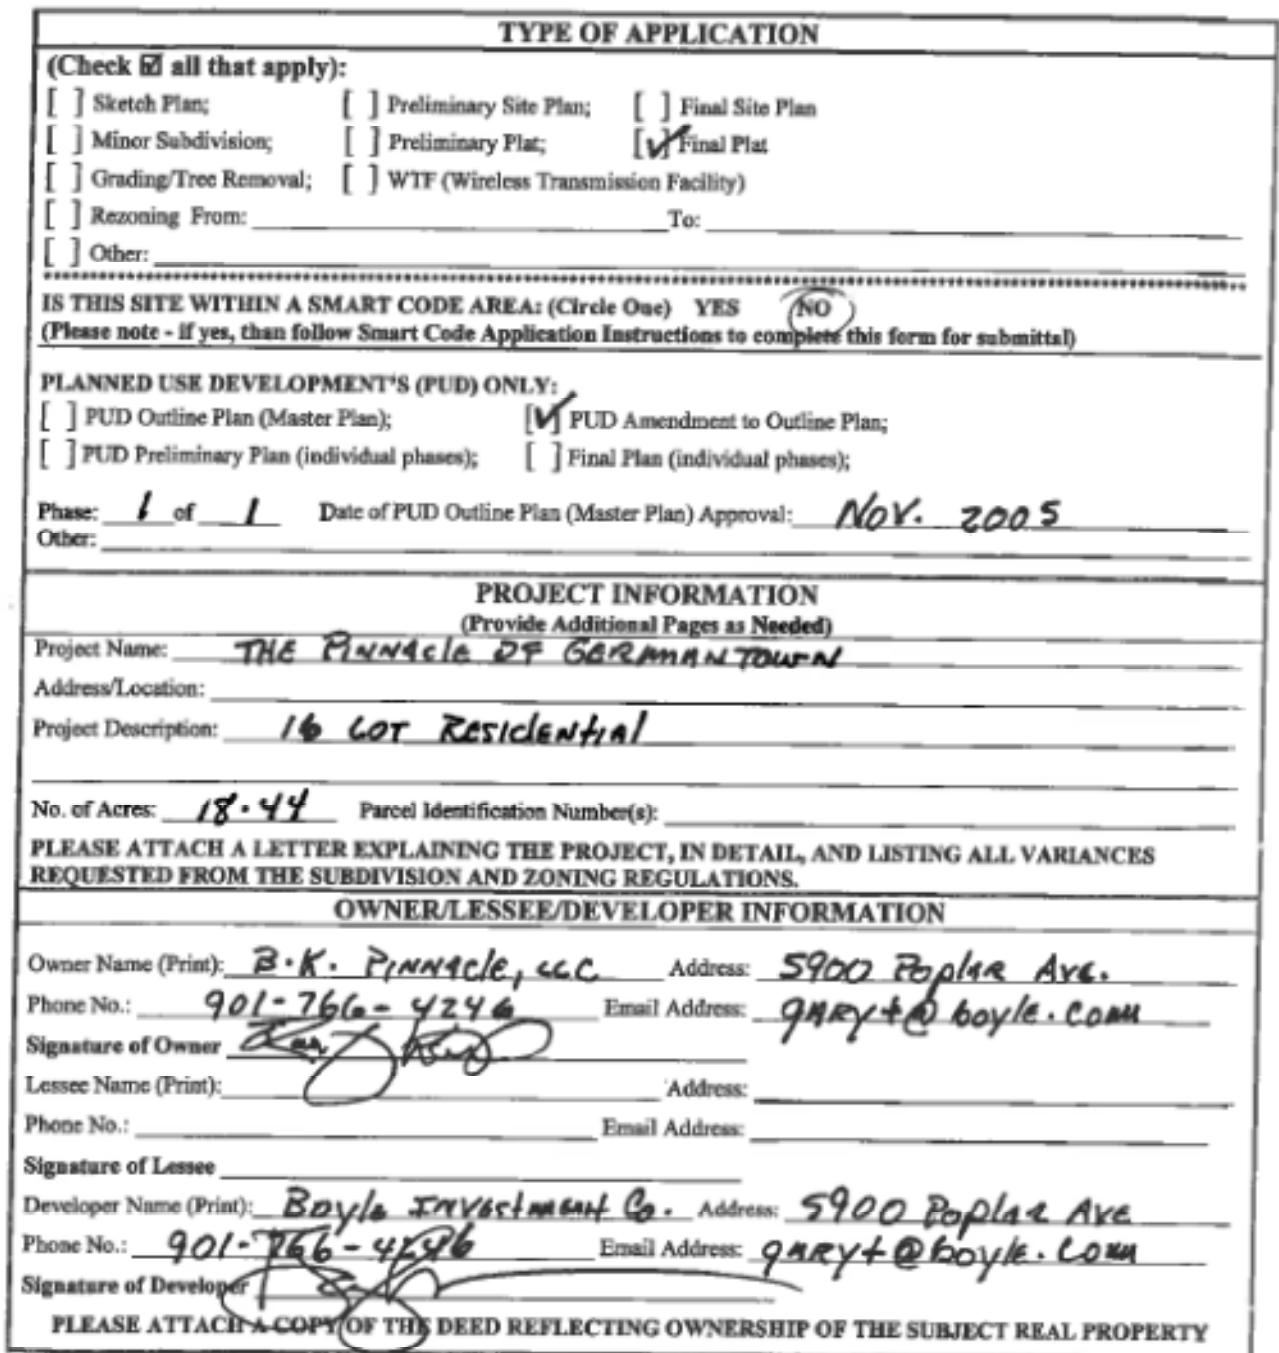 TYPE OF APPLICATION
(Check ☑ all that apply):
[ ] Sketch Plan; [ ] Preliminary Site Plan; [ ] Final Site Plan
[ ] Minor Subdivision; [ ] Preliminary Plat; [✓] Final Plat
[ ] Grading/Tree Removal; [ ] WTF (Wireless Transmission Facility)
[ ] Rezoning From: To:
[ ] Other:
IS THIS SITE WITHIN A SMART CODE AREA: (Circle One) YES NO
(Please note - if yes, than follow Smart Code Application Instructions to complete this form for submittal)
PLANNED USE DEVELOPMENT'S (PUD) ONLY:
[ ] PUD Outline Plan (Master Plan); [✓] PUD Amendment to Outline Plan;
[ ] PUD Preliminary Plan (individual phases); [ ] Final Plan (individual phases);
Phase: 1 of 1 Date of PUD Outline Plan (Master Plan) Approval: NOV. 2005
Other:
PROJECT INFORMATION
(Provide Additional Pages as Needed)
Project Name: THE PINNAcle OF GERMANTOWN
Address/Location:
Project Description: 16 LOT ResidENtiAl
No. of Acres: 18.44 Parcel Identification Number(s):
PLEASE ATTACH A LETTER EXPLAINING THE PROJECT, IN DETAIL, AND LISTING ALL VARIANCES
REQUESTED FROM THE SUBDIVISION AND ZONING REGULATIONS.
OWNER/LESSEE/DEVELOPER INFORMATION
Owner Name (Print): B.K. PINNAcle, LLC Address: 5900 Poplar Ave.
Phone No.: 901-766-4246 Email Address: garyt@boyle.com
Signature of Owner
Lessee Name (Print): Address:
Phone No.: Email Address:
Signature of Lessee
Developer Name (Print): Boyle Investment Co. Address: 5900 Poplar Ave
Phone No.: 901-766-4246 Email Address: garyt@boyle.com
Signature of Developer
PLEASE ATTACH A COPY OF THE DEED REFLECTING OWNERSHIP OF THE SUBJECT REAL PROPERTY